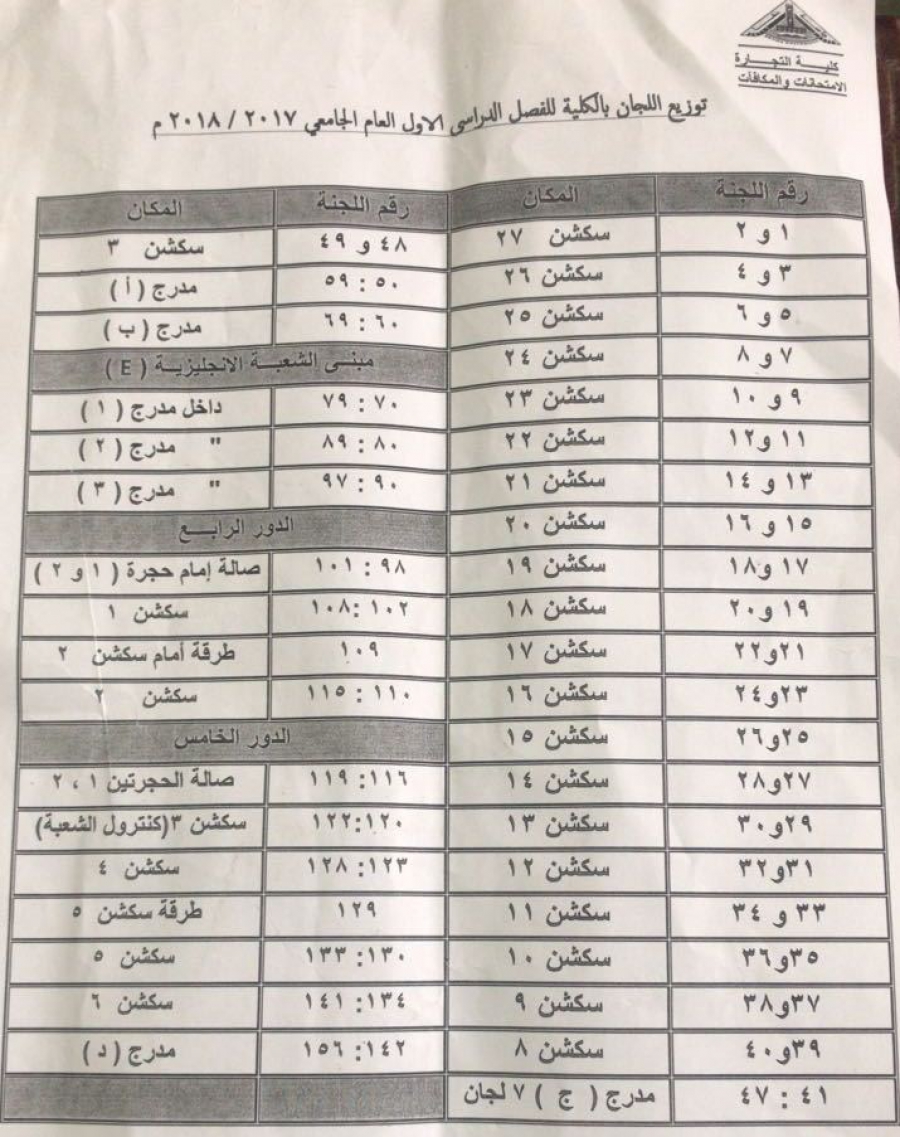 كلية التجارة
الامتحانات والمكافآت
توزيع اللجان بالكلية للفصل الدراسى الاول العام الجامعي ٢٠١٧ / ٢٠١٨ م
رقم اللجنة المكان رقم اللجنة المكان
١ و ٢ سكشن ٢٧ ٤٨ و ٤٩ سكشن ٣
٣ و ٤ سكشن ٢٦ ٥٠ : ٥٩ مدرج ( أ )
٥ و ٦ سكشن ٢٥ ٦٠ : ٦٩ مدرج ( ب )
٧ و ٨ سكشن ٢٤ مبنى الشعبة الانجليزية ( E )
٩ و ١٠ سكشن ٢٣ ٧٠ : ٧٩ داخل مدرج ( ١ )
١١ و١٢ سكشن ٢٢ ٨٠ : ٨٩ " مدرج ( ٢ )
١٣ و ١٤ سكشن ٢١ ٩٠ : ٩٧ " مدرج ( ٣ )
١٥ و ١٦ سكشن ٢٠ الدور الرابع
١٧ و١٨ سكشن ١٩ ٩٨ : ١٠١ صالة إمام حجرة ( ١ و ٢ )
١٩ و٢٠ سكشن ١٨ ١٠٢ : ١٠٨ سكشن ١
٢١و٢٢ سكشن ١٧ ١٠٩ طرقة أمام سكشن ٢
٢٣و٢٤ سكشن ١٦ ١١٠ : ١١٥ سكشن ٢
٢٥و٢٦ سكشن ١٥ الدور الخامس
٢٧و٢٨ سكشن ١٤ ١١٦: ١١٩ صالة الحجرتين ١ ، ٢
٢٩و٣٠ سكشن ١٣ ١٢٠:١٢٢ سكشن ٣(كنترول الشعبة)
٣١و٣٢ سكشن ١٢ ١٢٣: ١٢٨ سكشن ٤
٣٣ و ٣٤ سكشن ١١ ١٢٩ طرقة سكشن ٥
٣٥و٣٦ سكشن ١٠ ١٣٠: ١٣٣ سكشن ٥
٣٧و٣٨ سكشن ٩ ١٣٤: ١٤١ سكشن ٦
٣٩و٤٠ سكشن ٨ ١٤٢: ١٥٦ مدرج ( د )
٤١ : ٤٧ مدرج ( ج ) ٧ لجان